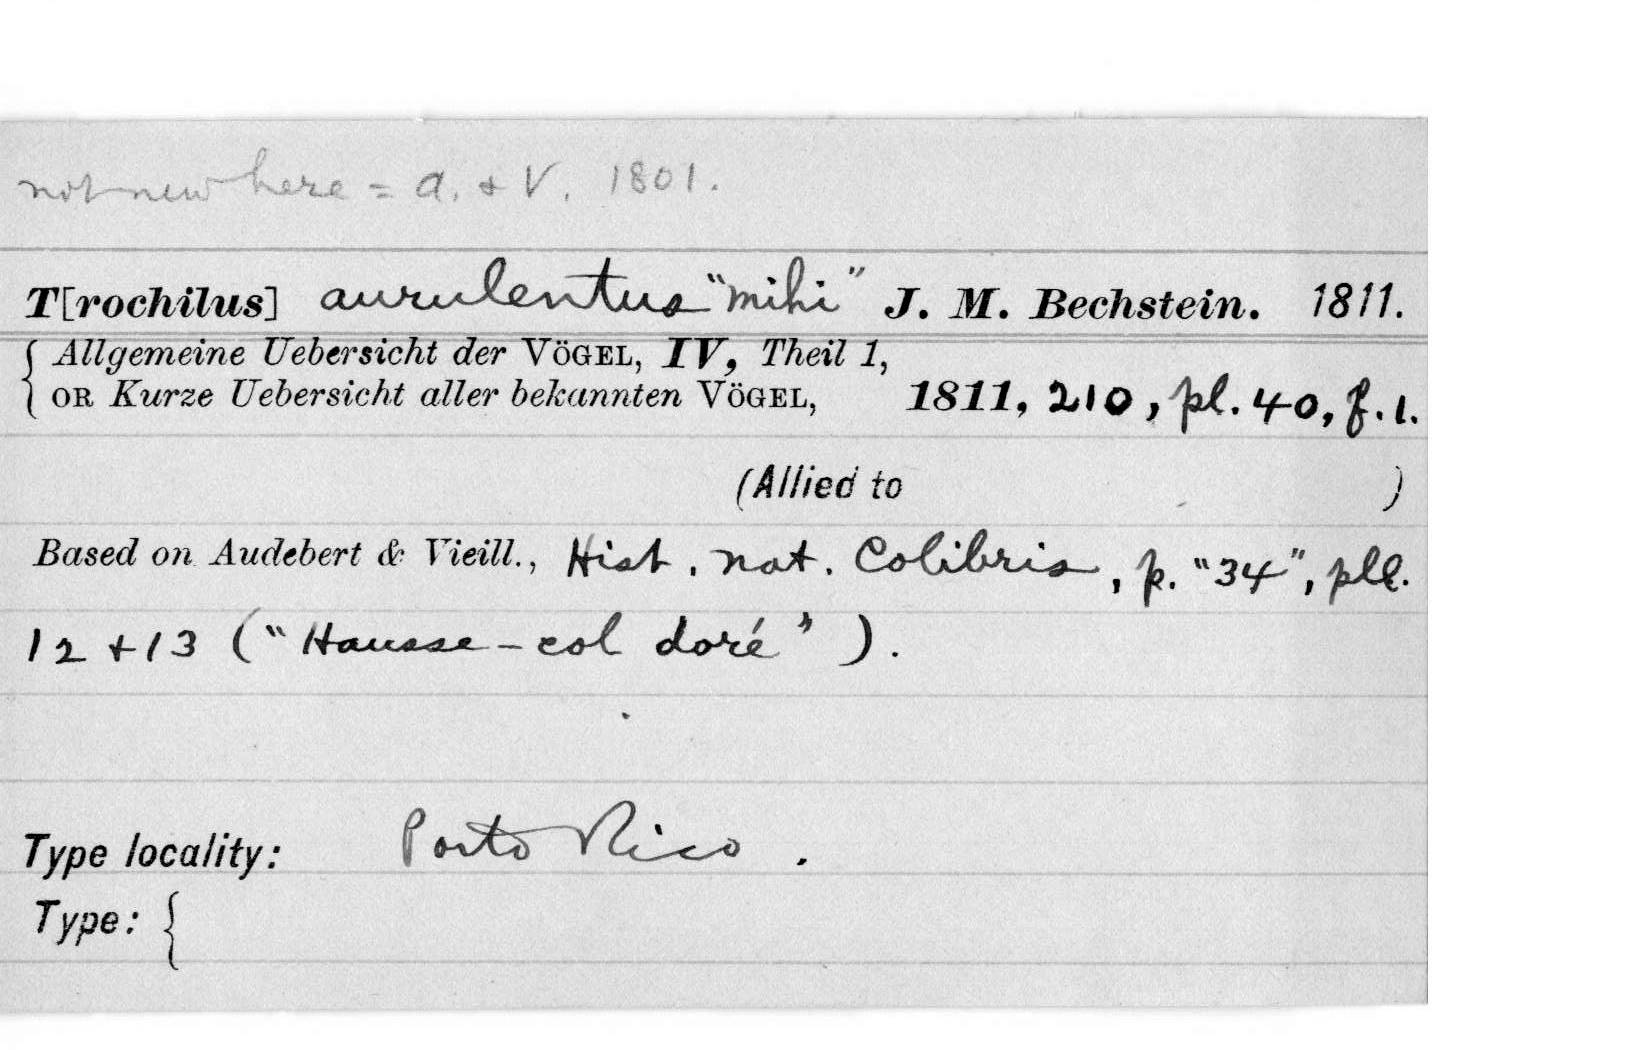 not new here = A. + V. 1801.
T[rochilus] aurulentus "mihi" J. M. Bechstein. 1811.
{ Allgemeine Uebersicht der VÖGEL, IV, Theil 1,
{ OR Kurze Uebersicht aller bekannten VÖGEL, 1811, 210, pl. 40, f. 1.
(Allied to )
Based on Audebert & Vieill., Hist. nat. Colibris, p. "34", pll.
12 + 13 ("Hausse-col doré").
Type locality: Porto Rico.
Type: {